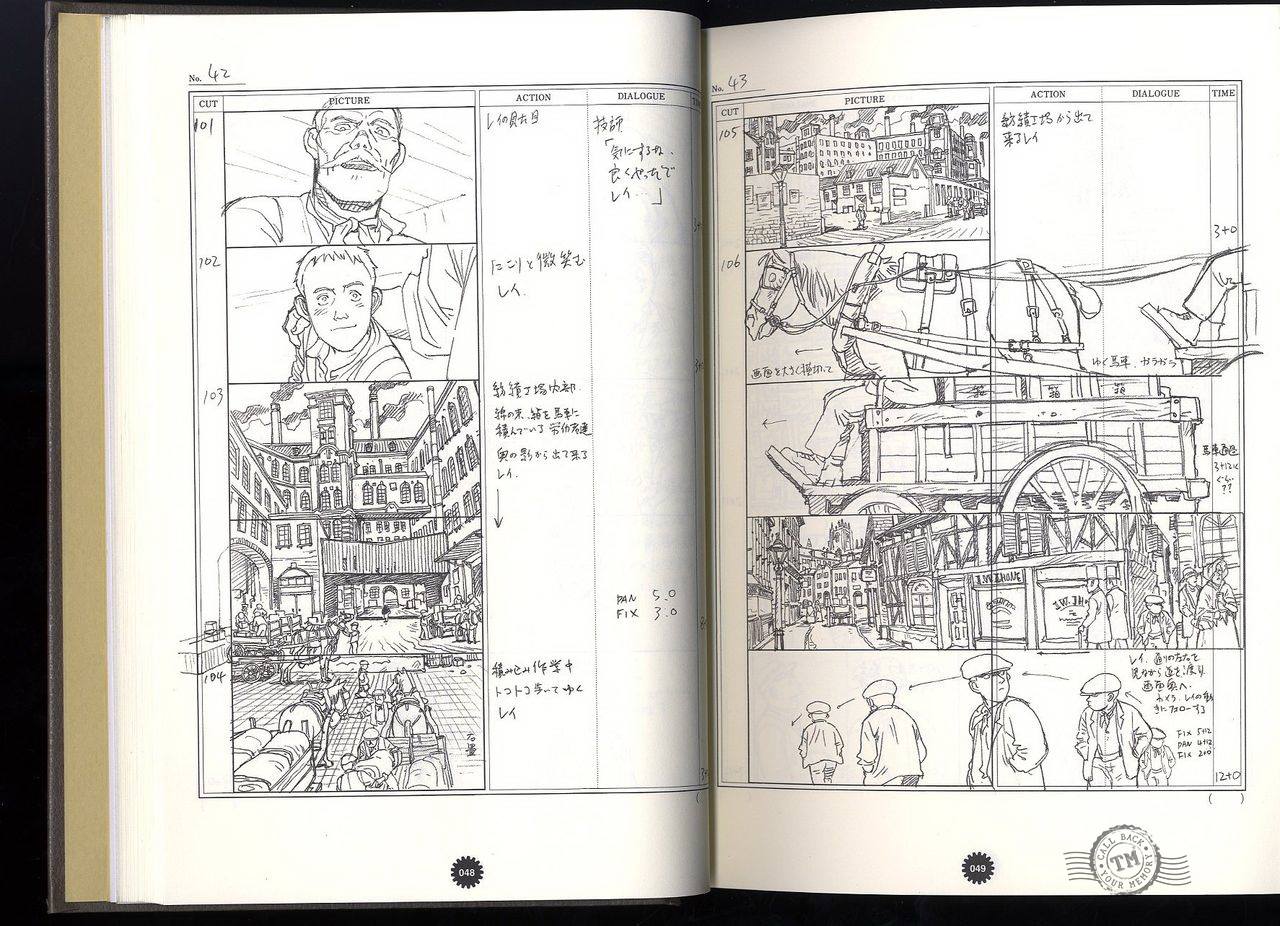 No. 42
CUT PICTURE ACTION DIALOGUE
101
技師
「気にするな.
良くやったで
レイ…」
102
ニコリと微笑む
レイ.
103
紡績工場内部.
積んでいる労働者達
奥の影から出て来る
レイ.
PAN 5.0
FIX 3.0
104
積み込み作業中
トコトコ歩いてゆく
レイ
石畳
048
No. 43
CUT PICTURE ACTION DIALOGUE TIME
105
紡績工場から出て
来るレイ
3+0
106
画面を大きく横切って
ゆく馬車. ガラガラ
箱 箱 箱
馬車通過
3+12K
ぐらい
??
レイ. 通りの左右を
見ながら道を渡り
画面奥へ.
カメラ. レイの動
きにフォローする
FIX 5+12
PAN 4+12
FIX 2+0
12+0
( )
049
CALL BACK
TM
YOUR MEMORY